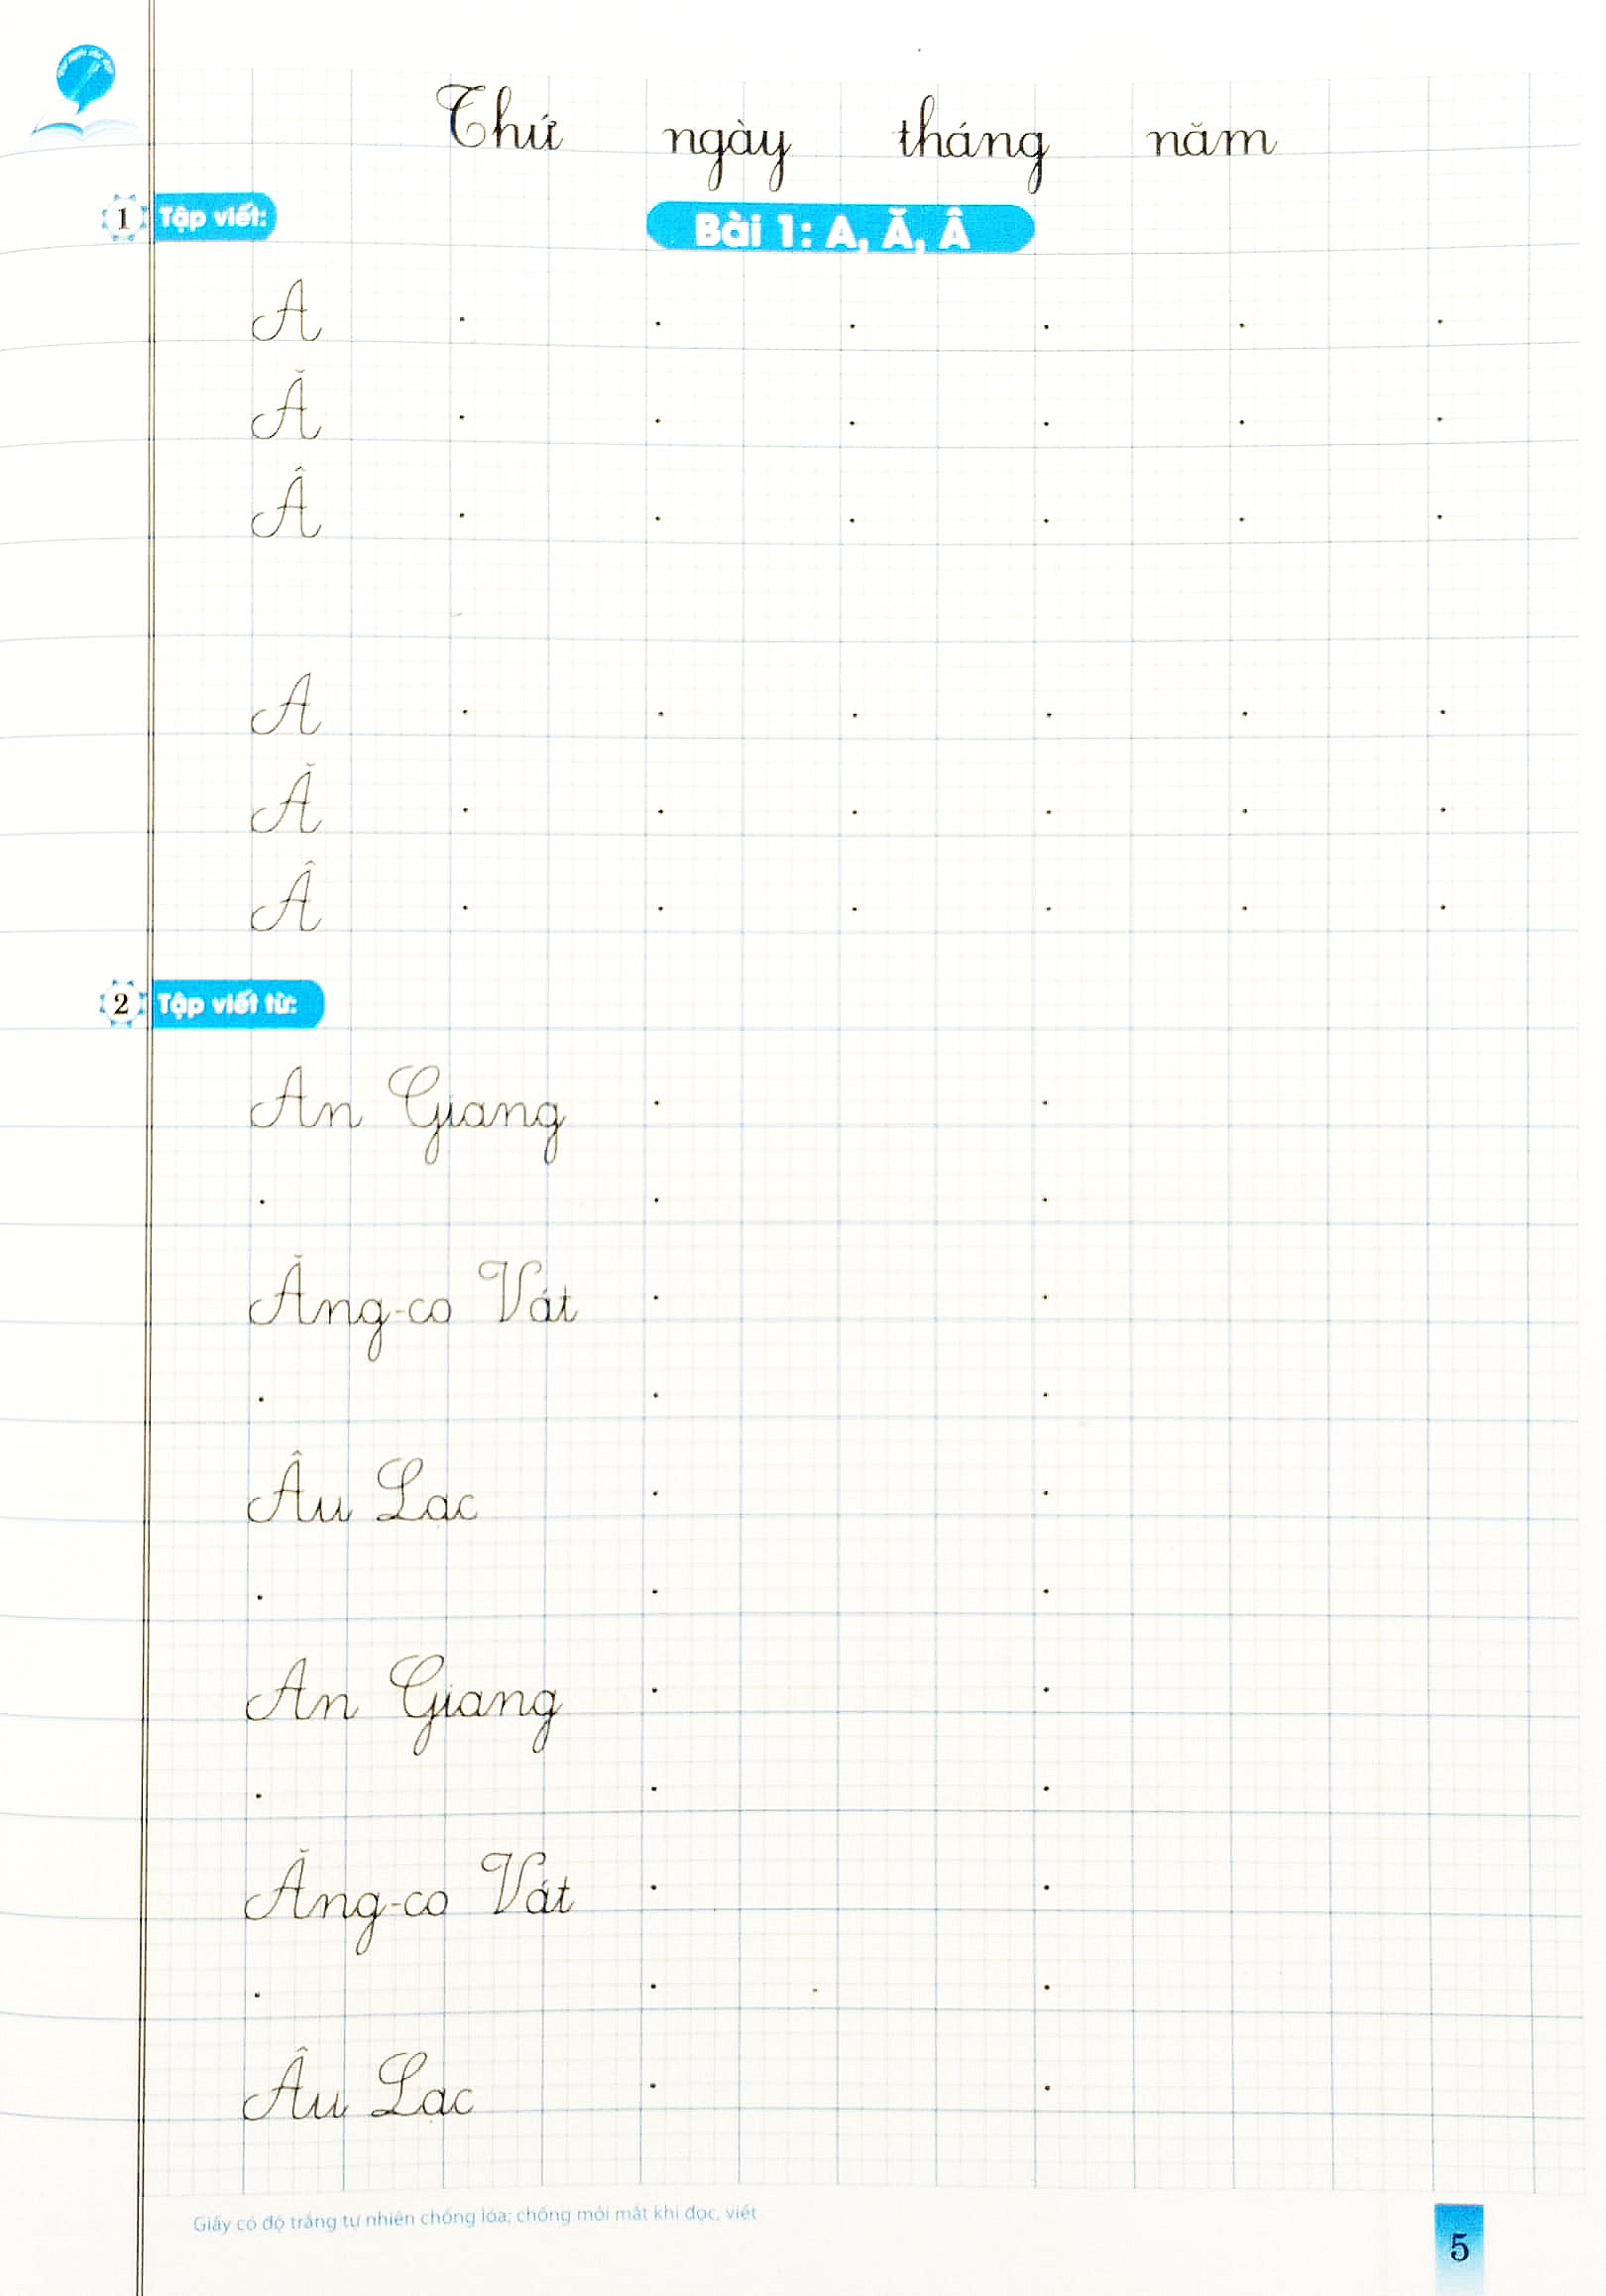 Thứ ngày tháng năm
1 Tập viết:
Bài 1: A, Ă, Â
A
Ă
Â
A
Ă
Â
2 Tập viết từ:
An Giang
Ăng-co Vát
Âu Lạc
An Giang
Ăng-co Vát
Âu Lạc
Giấy có độ trắng tự nhiên chống lóa; chống mỏi mắt khi đọc, viết
5